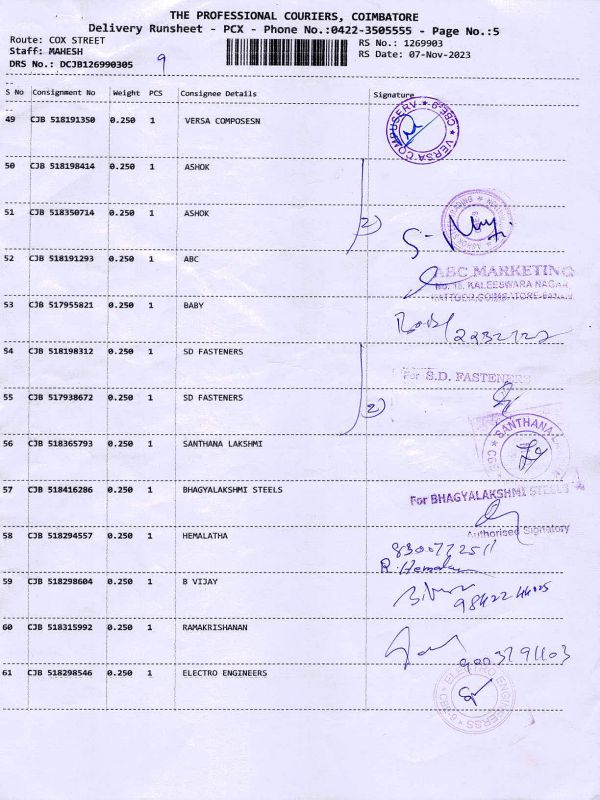 THE PROFESSIONAL COURIERS, COIMBATORE
Delivery Runsheet - PCX - Phone No.:0422-3505555 - Page No.:5
Route: COX STREET
RS No.: 1269903
Staff: MAHESH
RS Date: 07-Nov-2023
DRS No.: DCJB126990305 9
S No Consignment No Weight PCS Consignee Details Signature
49 CJB 518191350 0.250 1 VERSA COMPOSESN
VERSA COMPUSERV ★ CBE-9 ★
50 CJB 518198414 0.250 1 ASHOK
51 CJB 518350714 0.250 1 ASHOK
2)
52 CJB 518191293 0.250 1 ABC
ABC MARKETING
KALEESWARA NAGAR
53 CJB 517955821 0.250 1 BABY
54 CJB 518198312 0.250 1 SD FASTENERS
For S.D. FASTENERS
55 CJB 517938672 0.250 1 SD FASTENERS
2)
56 CJB 518365793 0.250 1 SANTHANA LAKSHMI
SANTHANA
57 CJB 518416286 0.250 1 BHAGYALAKSHMI STEELS
For BHAGYALAKSHMI STEELS
Authorised Signatory
58 CJB 518294557 0.250 1 HEMALATHA
R. Hemalatha
59 CJB 518298604 0.250 1 B VIJAY
60 CJB 518315992 0.250 1 RAMAKRISHANAN
61 CJB 518298546 0.250 1 ELECTRO ENGINEERS
ELECTRO ENGINEERSS